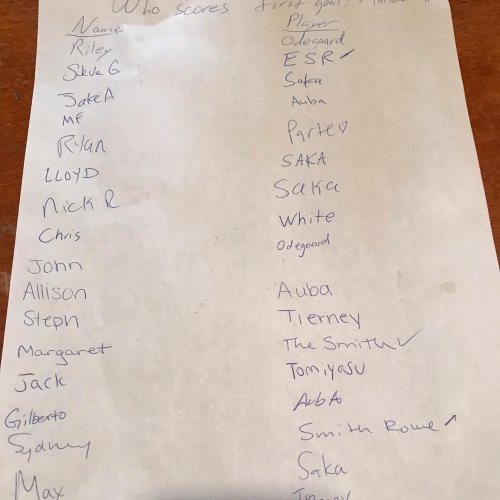 Who scores first goal?
Name Player
Riley Odegaard
Steve G ESR ✓
Jake A Saka
MF Auba
Ryan Partey
LLOYD SAKA
Nick R Saka
Chris White
John Odegaard
Allison Auba
Steph Tierney
Margaret The Smith ✓
Jack Tomiyasu
Gilberto AubA
Sydney Smith Rowe ✓
Max Saka